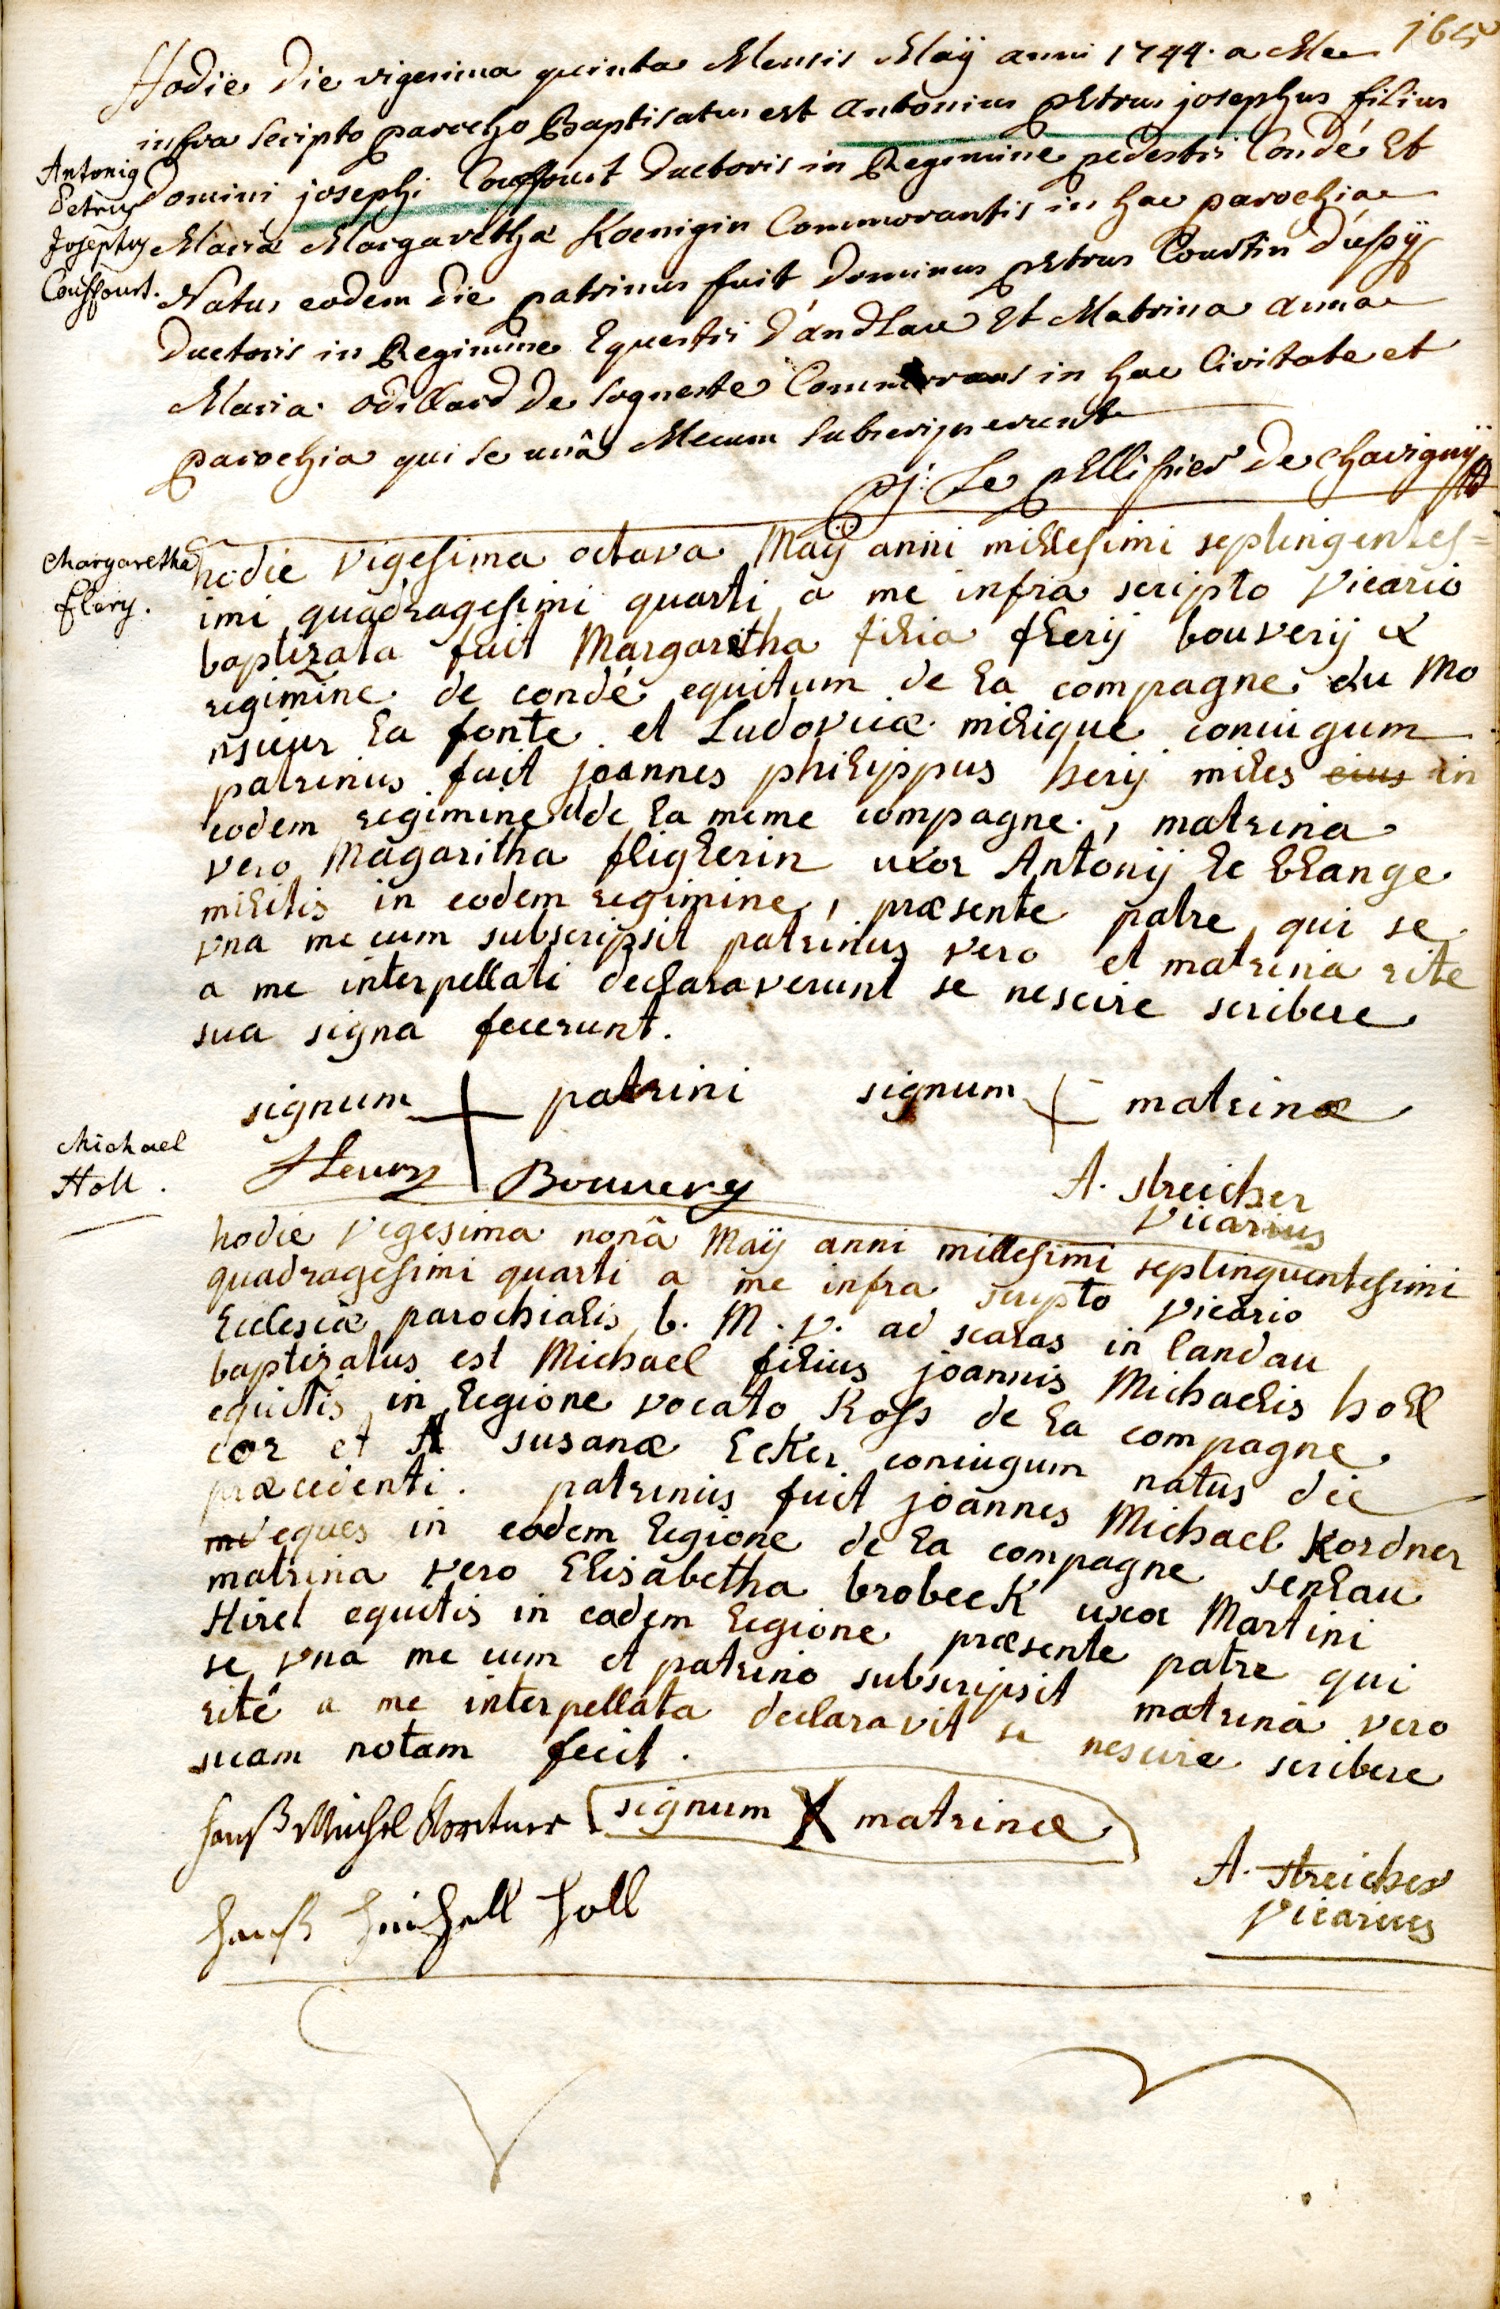 165
Hodie Die vigesima quinta Mensis Maÿ anni 1744. a Me
infra scripto parocho Baptisatus est antonius petrus josephus filius
Domini josephi Couffourt Ductoris in Regimine pedestri Condé Et
Maria Margaretha Koenigin Commorantis in hac parochia
Natus eodem die patrinus fuit Dominus petrus Courtin
Ductoris in Regimine Equestri D'andlau Et Matrina anna
Maria odillard de sogneste Commorans in hac Civitate et
parochia qui se unâ Mecum subscripserunt
Antonig
Petrus
Josephus
Couffourt.
pj: Le pellissier De chavignÿ
Margaretha
flery.
hodie vigesima octava Maÿ anni millesimi septingentes=
imi quadragesimi quarti a me infra scripto vicario
baptizata fuit Margaretha filia flerij bouverij ex
regimine de condé equitum de la compagne du Mo
nsieur la fonte et Ludovicæ milique coniugum
patrinus fuit joannes philippus herij miles eius in
eodem regimine de la meme compagne, matrina
vero Magaritha fliglerin uxor Antonij le blange
militis in eodem regimine, præsente patre qui se
una me cum subscripsit patrinus vero et matrina rite
a me interpellati declaraverunt se nescire scribere
sua signa fecerunt.
signum + patrini signum + matrinæ
fleury Bouuery
A. streicher
vicarius
Michael
Holl.
hodie vigesima nonâ Maÿ anni millesimi septinguentesimi
quadragesimi quarti a me infra scripto vicario
Ecclesiæ parochialis b. M. v. ad scalas in landau
baptizatus est Michael filius joannis Michaelis holl
equitis in legione vocato Ross de la compagne
cor et susanæ Ecker coniugum natus die
præcedenti. patrinus fuit joannes Michael Kordner
eques in eodem legione de la compagne senlau
matrina vero Elisabetha brobeck uxor Martini
Hirel equitis in eadem legione præsente patre qui
se una me cum et patrino subscripsit matrina vero
ritè a me interpellata declaravit se nescire scribere
suam notam fecit.
hanß Michel Kortner signum X matrinæ
hanß Michell holl
A. streicher
vicarius